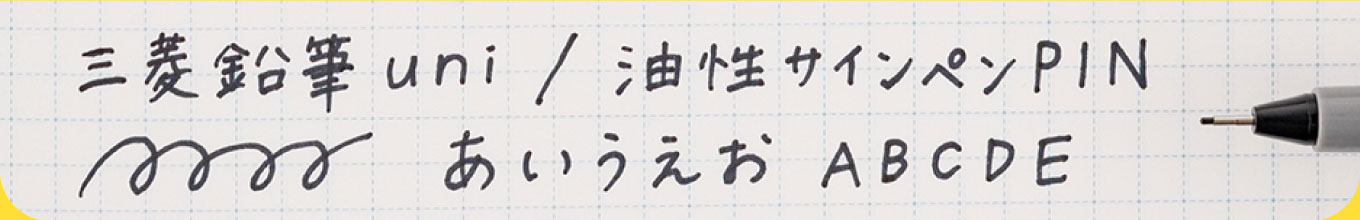 三菱鉛筆 uni / 油性サインペンPIN
あいうえお ABCDE